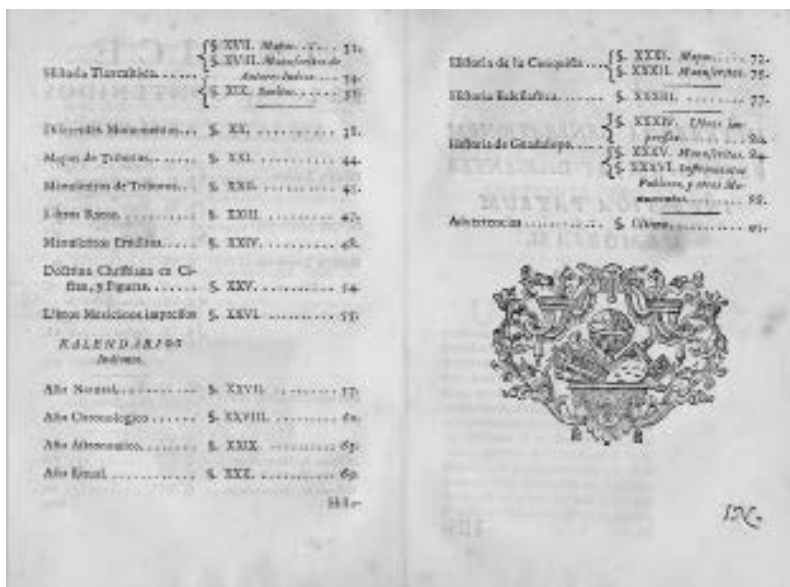 §. XVII. Mapas. ...... 32.
§. XVIII. Manuscritos de
Historia Tlaxcalteca. ......
Autores Indios. ... 34.
§. XIX. ........
Diferentes Monumentos... §. XX. ............ 38.
Mapas de Tributos....... §. XXI. ............ 44.
Manuscritos de Tributos... §. XXII. ........... 45.
Libros ....... §. XXIII. .......... 47.
Manuscritos Eruditos. .... §. XXIV. .......... 48.
Doctrina Christiana en Ci-
fras, y Figuras. ....... §. XXV. ........... 54.
Libros Mexicanos impressos §. XXVI. .......... 55.
KALENDARIOS
Indianos.
Año Natural. ........... §. XXVII. ......... 57.
Año Chronologico ...... §. XXVIII. ........ 60.
Año Astronomico. ....... §. XXIX. .......... 65.
Año Ritual. ............ §. XXX. ........... 69.
Histo-
Historia de la Conquista ... §. XXXI. Mapas. .... 72.
§. XXXII. Manuscritos. 75.
Historia Eclesiastica. ...... §. XXXIII. ........ 77.
§. XXXIV. Libros im-
pressos. ........
Historia de Guadalupe. ....
§. XXXV. Manuscritos. 84.
§. XXXVI. Instrumentos
Publicos, y otros Mo-
numentos. ........ 88.
Advertencias ............ §. Ultimo. ......... 91.
IN-